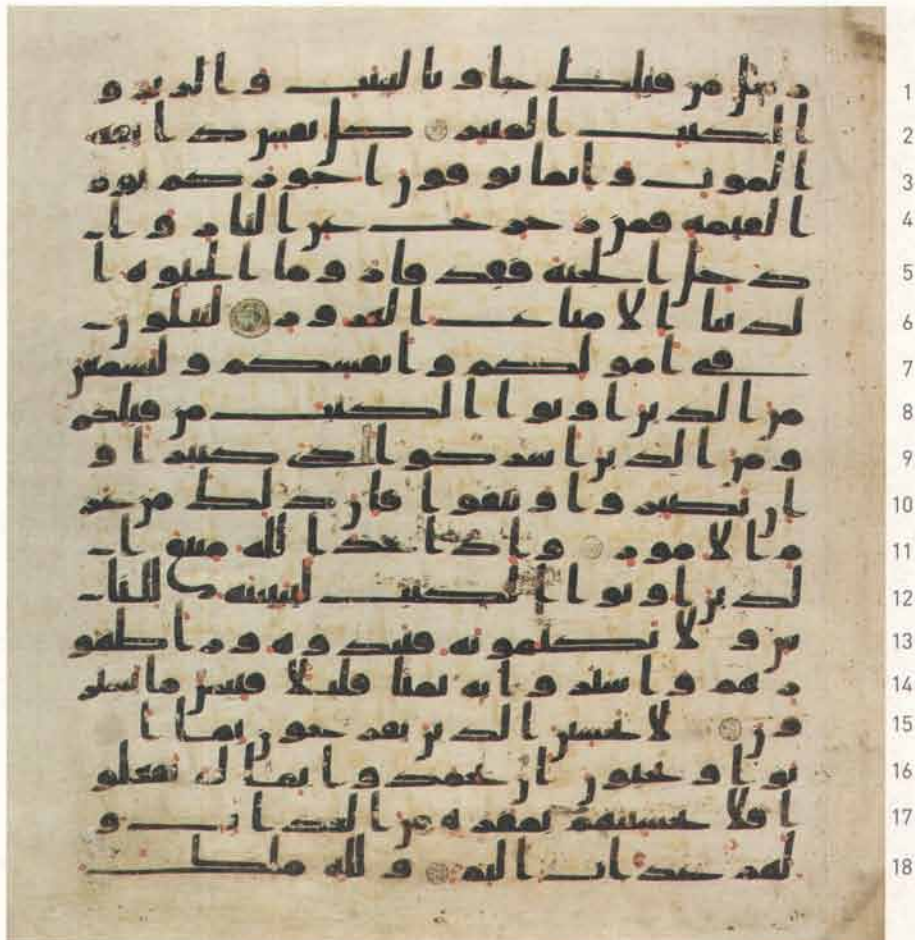 رسل من قبلك جاو بالبينت والزبر و 1
الكتب المنير كل نفس ذايقه 2
الموت وانما توفون اجوركم يوم 3
القيمه فمن زحزح عن النار وا 4
دخل الجنه فقد فاز وما الحيوه ا 5
لدنيا الا متع الغرور لتبلون 6
في امولكم وانفسكم ولتسمعن 7
من الذين اوتوا الكتب من قبلكم 8
ومن الذين اشركوا اذى كثيرا و 9
ان تصبروا وتتقوا فان ذلك من عز 10
م الامور واذ اخذ الله ميثق ا 11
لذين اوتوا الكتب لتبيننه للنا 12
س ولا تكتمونه فنبذوه ورا ظهو 13
رهم واشتروا به ثمنا قليلا فبيس ما يشتر 14
ون لا تحسبن الذين يفرحون بما ا 15
توا ويحبون ان يحمدوا بما لم يفعلو 16
ا فلا تحسبنهم بمفازه من العذاب و 17
لهم عذاب اليم ولله ملك 18